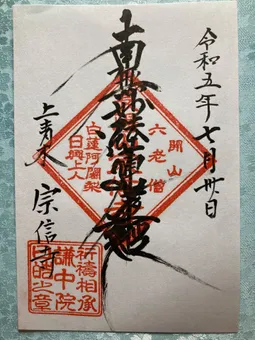 令和五年七月卅日
南無妙法蓮華経
開山
六老僧
白蓮阿闍梨
日興上人
上青木
宗信寺
祈祷相承
謙中院